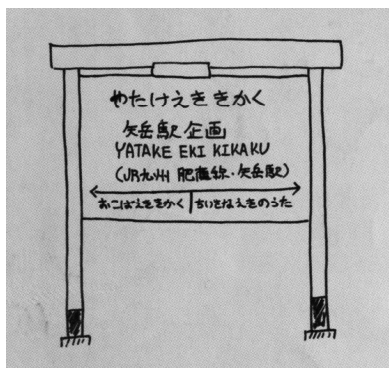 やたけえききかく
矢岳駅企画
YATAKE EKI KIKAKU
(JR九州 肥薩線・矢岳駅)
おこばえききかく ちいさなえきのうた